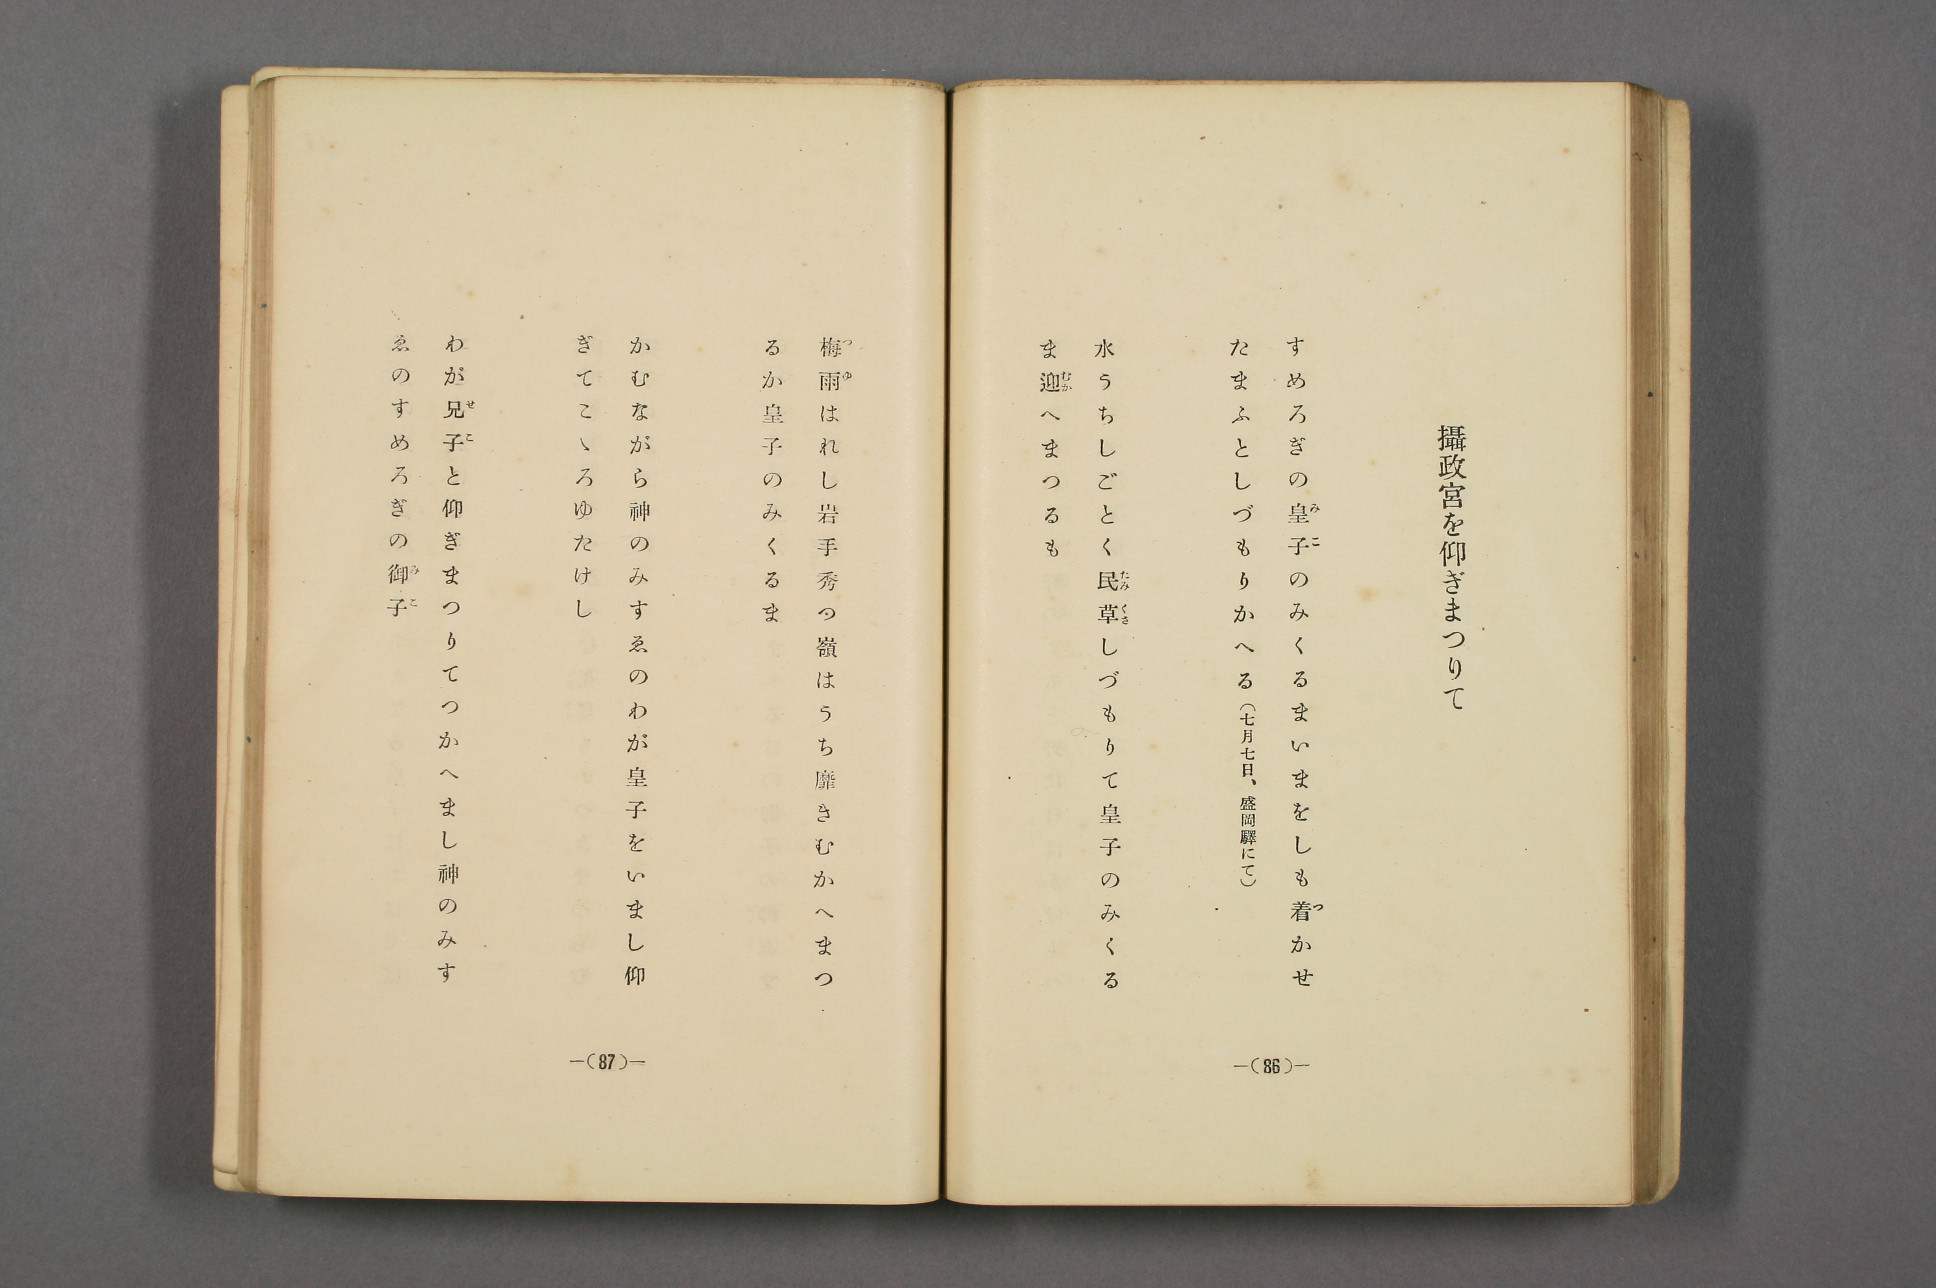 攝政宮を仰ぎまつりて
すめろぎの皇子のみくるまいまをしも着かせ
たまふとしづもりかへる(七月七日、盛岡驛にて)
水うちしごとく民草しづもりて皇子のみくる
ま迎へまつるも
—(86)—
梅雨はれし岩手秀つ嶺はうち靡きむかへまつ
るか皇子のみくるま
かむながら神のみすゑのわが皇子をいまし仰
ぎてこゝろゆたけし
わが兄子と仰ぎまつりてつかへまし神のみす
ゑのすめろぎの御子
—(87)—